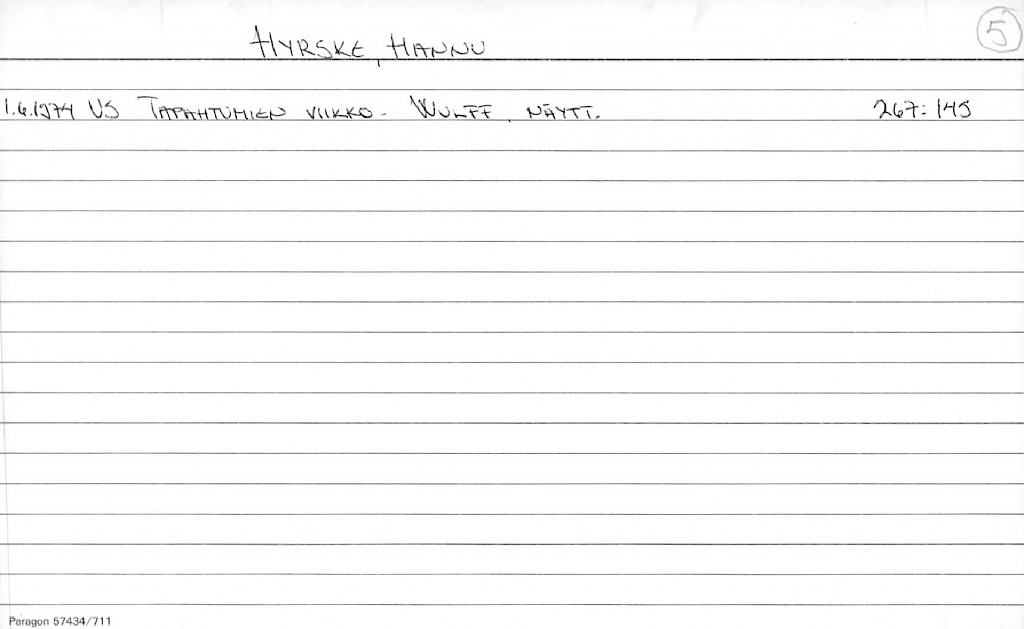 HYRSKE, HANNU 5
1.6.1974 US TAPAHTUMIEN VIIKKO - WULFF, NÄYTT. 267:145
Paragon 57434/711